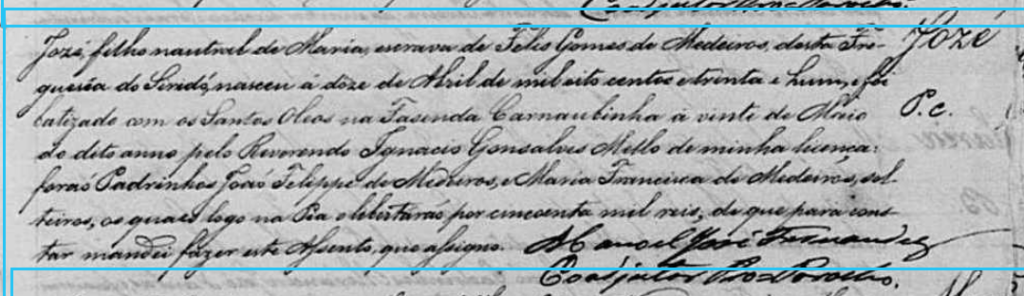 Coadjutor Pro Parocho.
Jozé, filho nautral de Maria, escrava de Felis Gomes de Medeiros, desta Fre-
guesia do Seridó, nasceu á doze de Abril de mil oito centos e trinta e hum, e foi
batizado com os Santos Oleos na Fasenda Carnaubinha á vinte de Maio
do dito anno pelo Reverendo Ignacio Gonsalves Mello de minha licença:
foraõ Padrinhos Joaõ Felippe de Medeiros, e Maria Francisca de Medeiros, sol-
teiros, os quaes logo na Pia o libertaraõ por cincoenta mil reis, de que para cons-
tar mandei fazer este Assento, que assigno. Manoel José Fernandes
Coadjutor Pro Parocho.
Jozé
P. c.